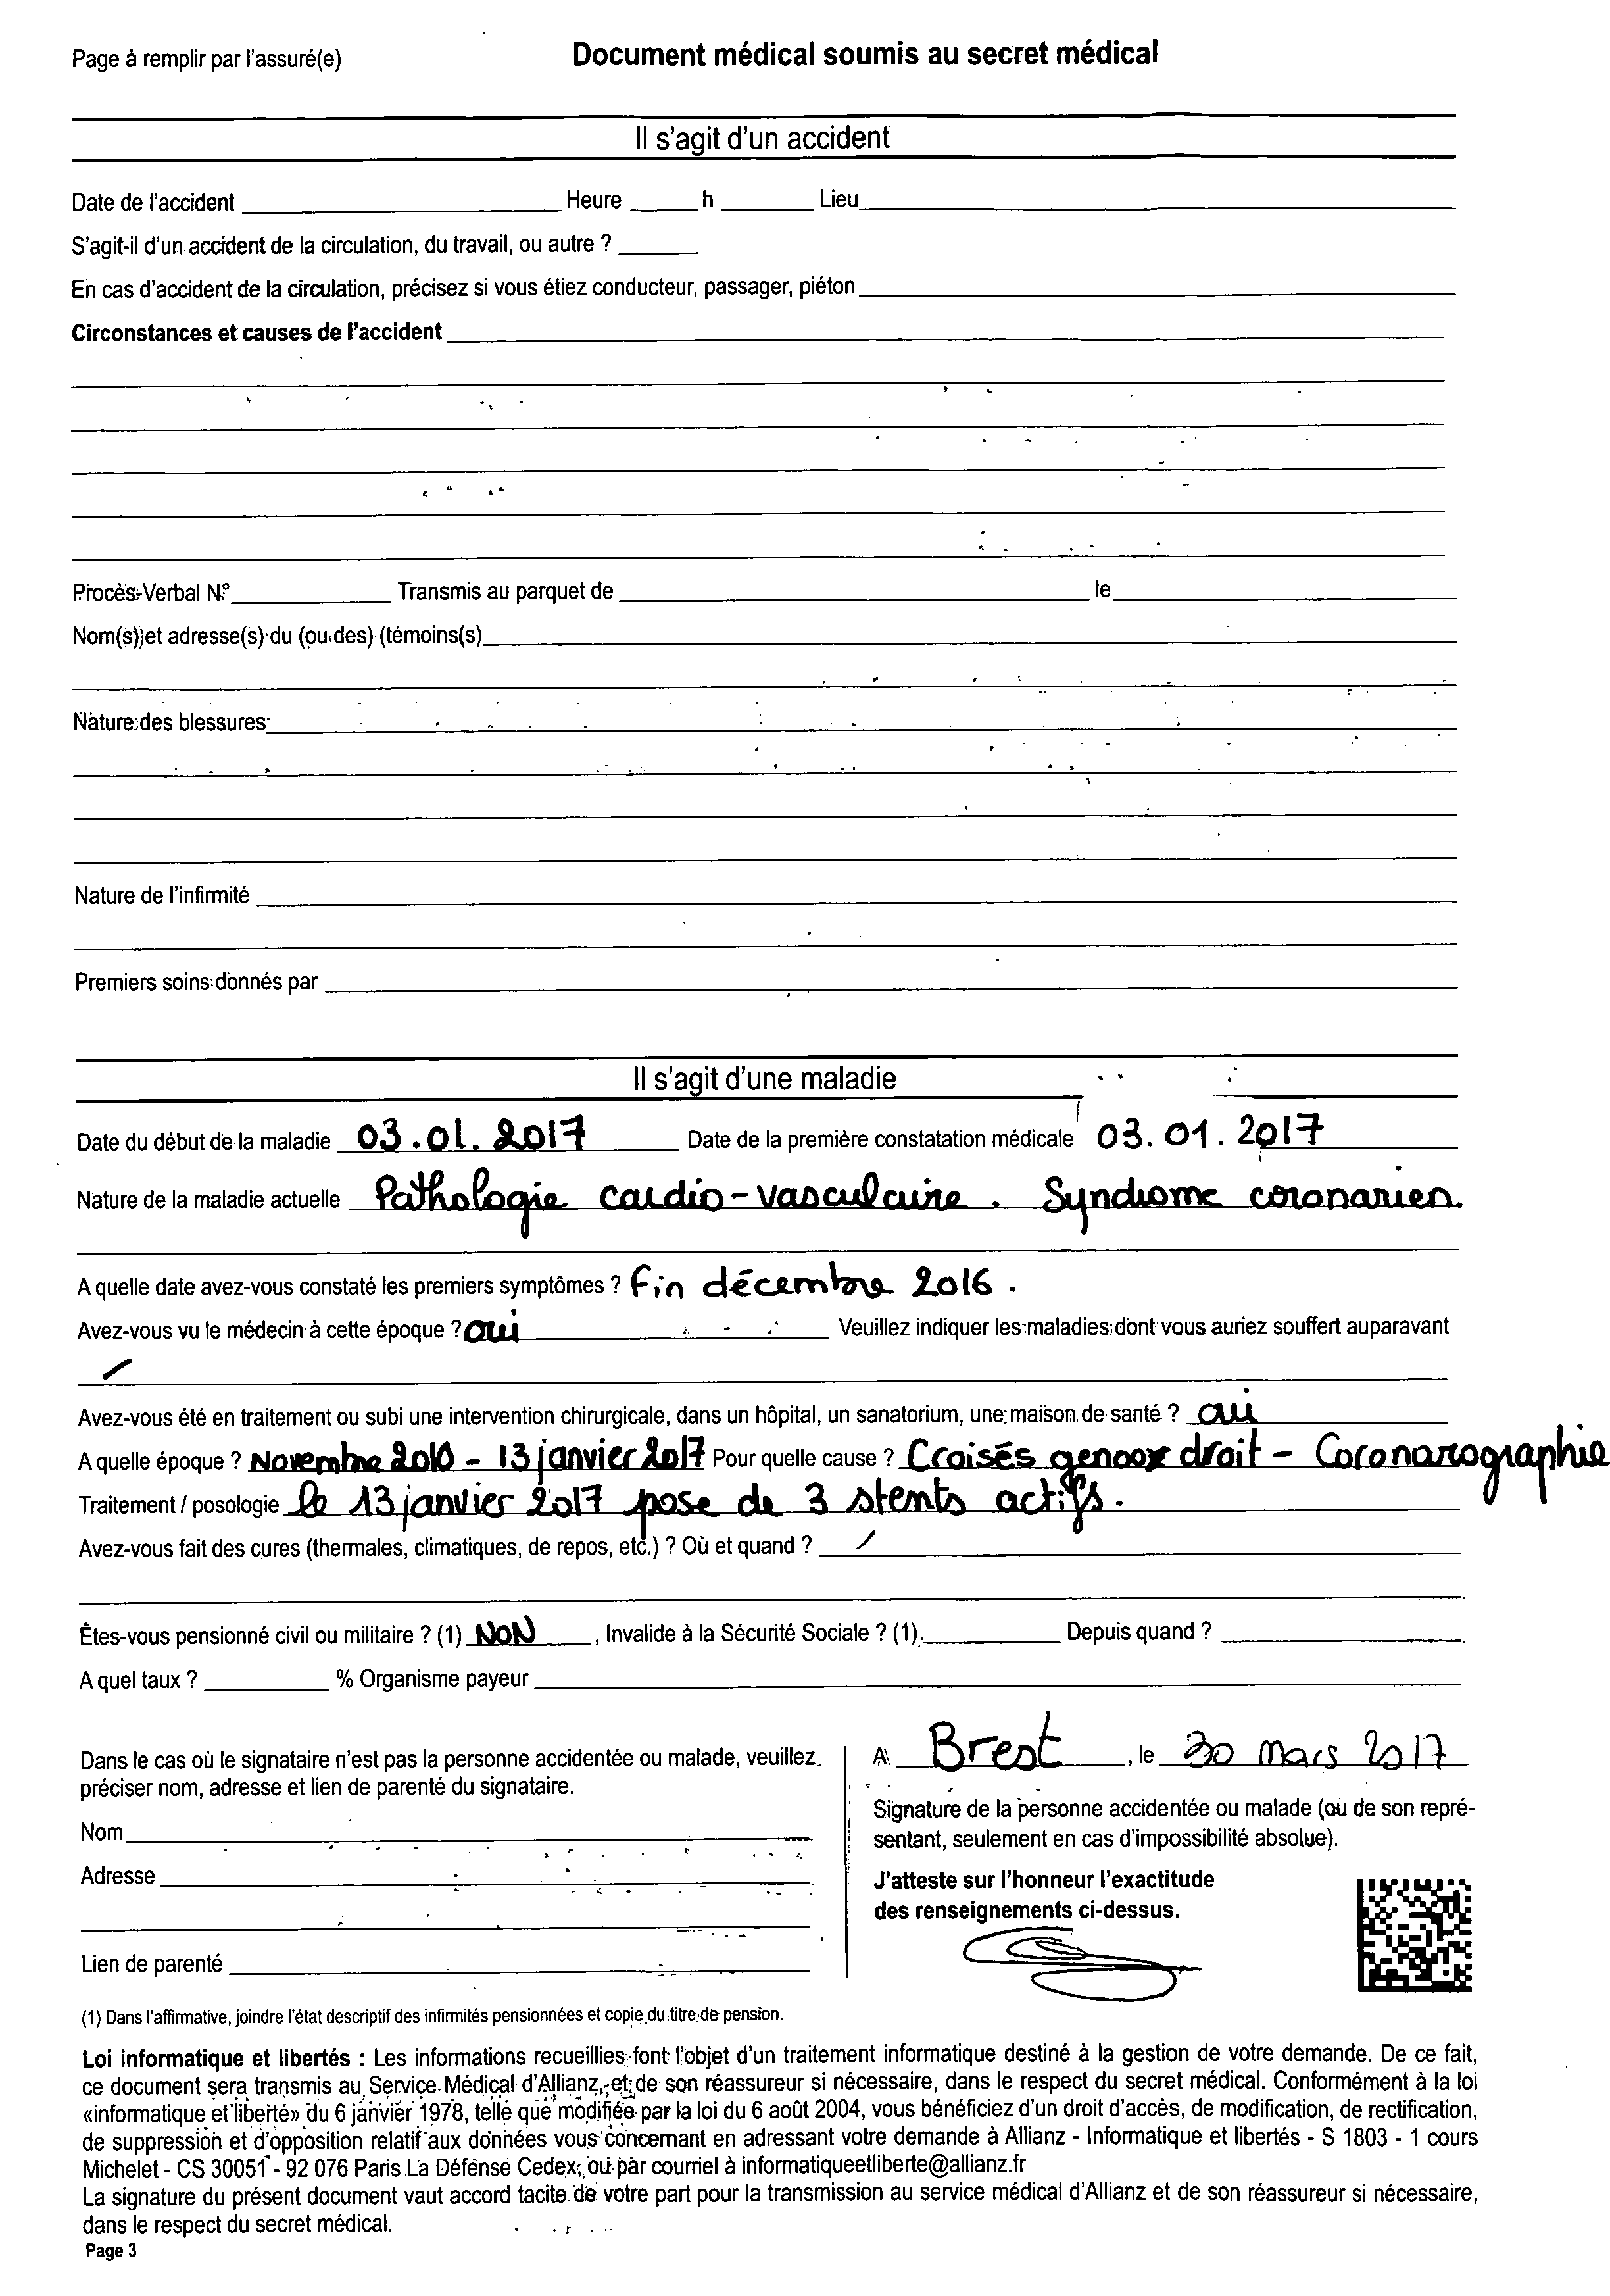 Page à remplir par l'assuré(e)
Document médical soumis au secret médical
Il s'agit d'un accident
Date de l'accident Heure h Lieu
S'agit-il d'un accident de la circulation, du travail, ou autre ?
En cas d'accident de la circulation, précisez si vous étiez conducteur, passager, piéton
Circonstances et causes de l'accident
Procès-Verbal N° Transmis au parquet de le
Nom(s) et adresse(s) du (ou des) (témoins(s)
Nature des blessures
Nature de l'infirmité
Premiers soins donnés par
Il s'agit d'une maladie
Date du début de la maladie 03.01.2017 Date de la première constatation médicale 03.01.2017
Nature de la maladie actuelle Pathologie cardio-vasculaire. Syndrome coronarien.
A quelle date avez-vous constaté les premiers symptômes ? Fin décembre 2016.
Avez-vous vu le médecin à cette époque ? oui Veuillez indiquer les maladies dont vous auriez souffert auparavant
/
Avez-vous été en traitement ou subi une intervention chirurgicale, dans un hôpital, un sanatorium, une maison de santé ? oui
A quelle époque ? Novembre 2010 - 13 janvier 2017 Pour quelle cause ? Croisés genoux droit - Coronarographie
Traitement / posologie le 13 janvier 2017 pose de 3 stents actifs.
Avez-vous fait des cures (thermales, climatiques, de repos, etc.) ? Où et quand ? /
Êtes-vous pensionné civil ou militaire ? (1) NON , Invalide à la Sécurité Sociale ? (1) Depuis quand ?
A quel taux ? % Organisme payeur
Dans le cas où le signataire n'est pas la personne accidentée ou malade, veuillez
préciser nom, adresse et lien de parenté du signataire.
Nom
Adresse
Lien de parenté
A Brest , le 30 mars 2017
Signature de la personne accidentée ou malade (ou de son repré-
sentant, seulement en cas d'impossibilité absolue).
J'atteste sur l'honneur l'exactitude
des renseignements ci-dessus.
(1) Dans l'affirmative, joindre l'état descriptif des infirmités pensionnées et copie du titre de pension.
Loi informatique et libertés : Les informations recueillies font l'objet d'un traitement informatique destiné à la gestion de votre demande. De ce fait,
ce document sera transmis au Service Médical d'Allianz, et de son réassureur si nécessaire, dans le respect du secret médical. Conformément à la loi
«informatique et liberté» du 6 janvier 1978, telle que modifiée par la loi du 6 août 2004, vous bénéficiez d'un droit d'accès, de modification, de rectification,
de suppression et d'opposition relatif aux données vous concernant en adressant votre demande à Allianz - Informatique et libertés - S 1803 - 1 cours
Michelet - CS 30051 - 92 076 Paris La Défense Cedex, ou par courriel à informatiqueetliberte@allianz.fr
La signature du présent document vaut accord tacite de votre part pour la transmission au service médical d'Allianz et de son réassureur si nécessaire,
dans le respect du secret médical.
Page 3